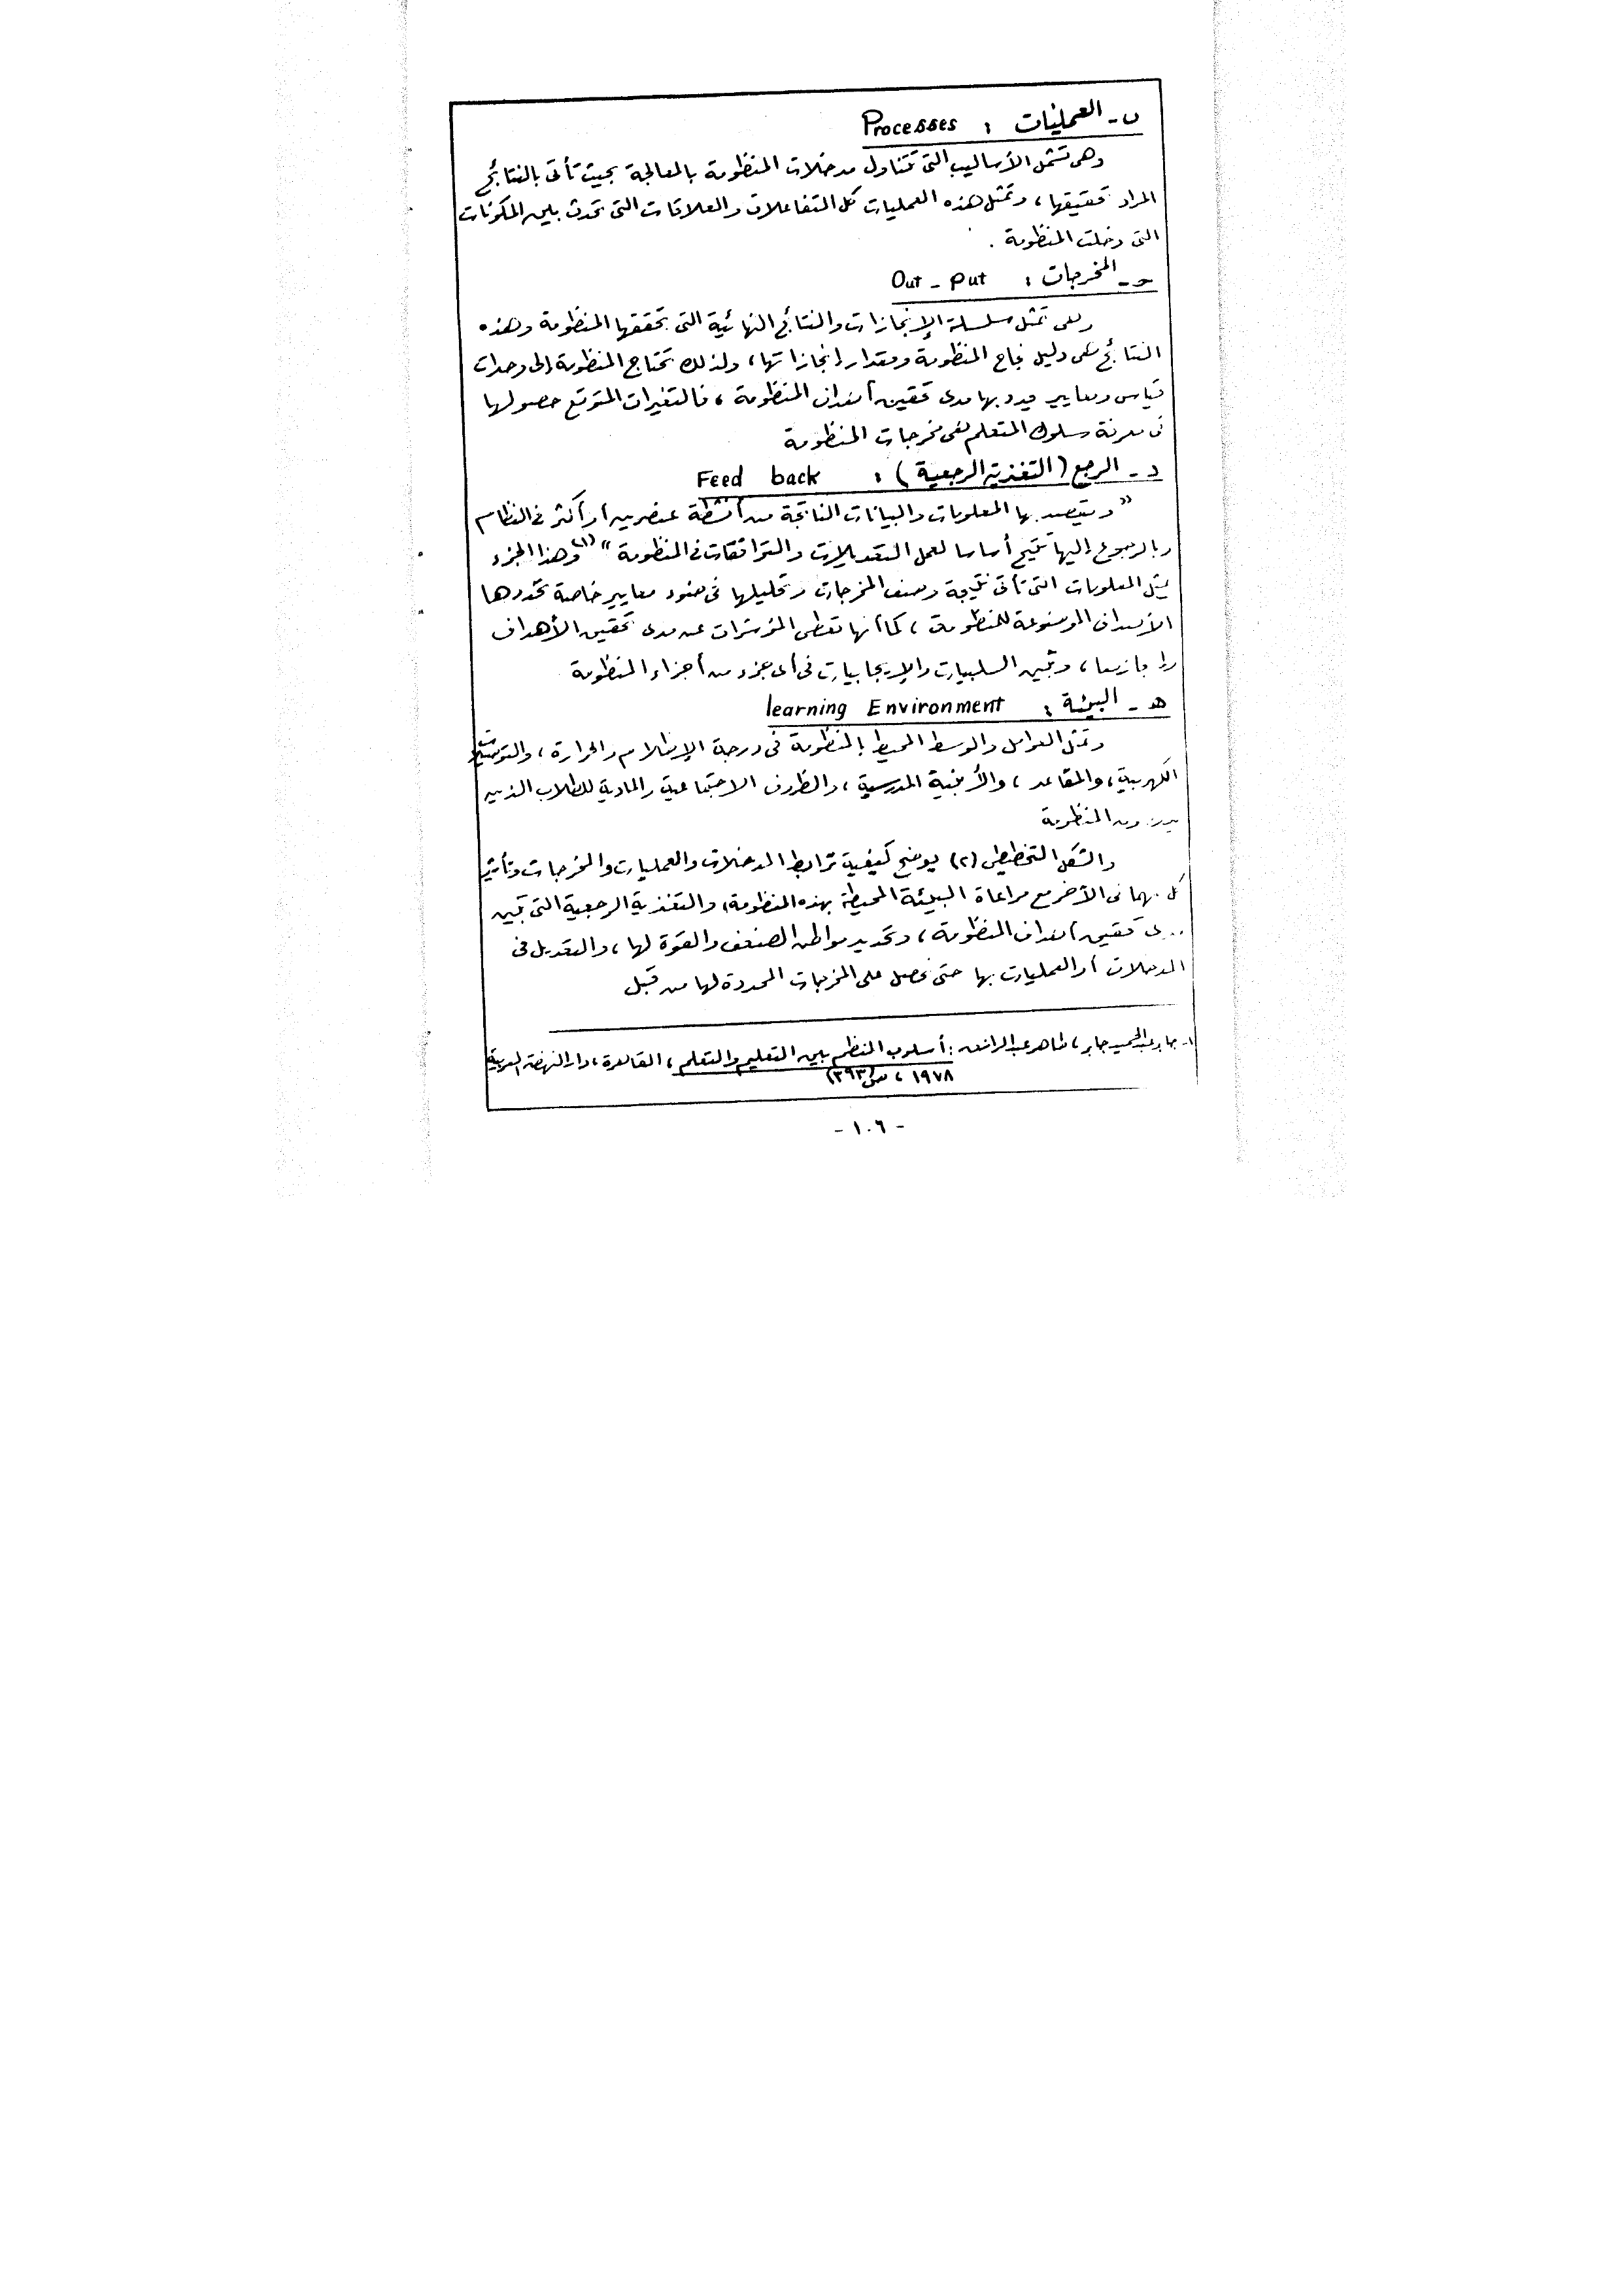 ب - العمليات : Processes
وهى تشمل الأساليب التى تتناول مدخلات المنظومة بالمعالجة بحيث تأتى بالنتائج
المراد تحقيقها ، وتمثل هذه العمليات كل التفاعلات والعلاقات التى تحدث بين المكونات
التى دخلت المنظومة .
جـ - المخرجات : Out - Put
وهى تمثل سلسلة الإنجازات والنتائج النهائية التى تحققها المنظومة وهذه
النتائج هى دليل نجاح المنظومة ومقدار إنجازاتها ، ولذلك تحتاج المنظومة إلى وحدات
قياس ومعايير يحدد بها مدى تحقيق أهداف المنظومة ، فالتغيرات المتوقع حصولها
فى معرفة وسلوك المتعلم هى مخرجات المنظومة
د - الرجع ( التغذية الرجعية ) : Feed back
" ويقصد بها المعلومات والبيانات الناتجة من أنشطة عنصرين أو أكثر فى النظام
وبالرجوع إليها تتيح أساسا لعمل التعديلات والتوافقات فى المنظومة " (١) وهذا الجزء
يمثل المعلومات التى تأتى نتيجة وصف المخرجات وتحليلها فى ضوء معايير خاصة تحددها
الأهداف الموضوعة للمنظومة ، كما أنها تعطى المؤشرات عن مدى تحقيق الأهداف
وإنجازها ، وتبين السلبيات والإيجابيات فى أى جزء من أجزاء المنظومة
هـ - البيئة : learning Environment
وتمثل العوامل والوسط المحيط بالمنظومة فى درجة الإظلام والحرارة ، والتوصيلات
الكهربية ، والمقاعد ، والأبنية المدرسية ، والظروف الاجتماعية والمادية للطلاب الذين
يدرسون المنظومة
والشكل التخطيطى (٢) يوضح كيفية ترابط المدخلات والعمليات والمخرجات وتأثير
كل منهما فى الآخر مع مراعاة البيئة المحيطة بهذه المنظومة ، والتغذية الرجعية التى تبين
مدى تحقيق أهداف المنظومة ، وتحديد مواطن الضعف والقوة لها ، والتعديل فى
المدخلات أو العمليات بها حتى نحصل على المخرجات المحددة لها من قبل
١- جابر عبد الحميد جابر ، طاهر عبد الرازق : أسلوب النظم بين التعليم والتعلم ، القاهرة ، دار النهضة العربية
١٩٧٨ ، ص (٣٩٣)
- ١٠٦ -